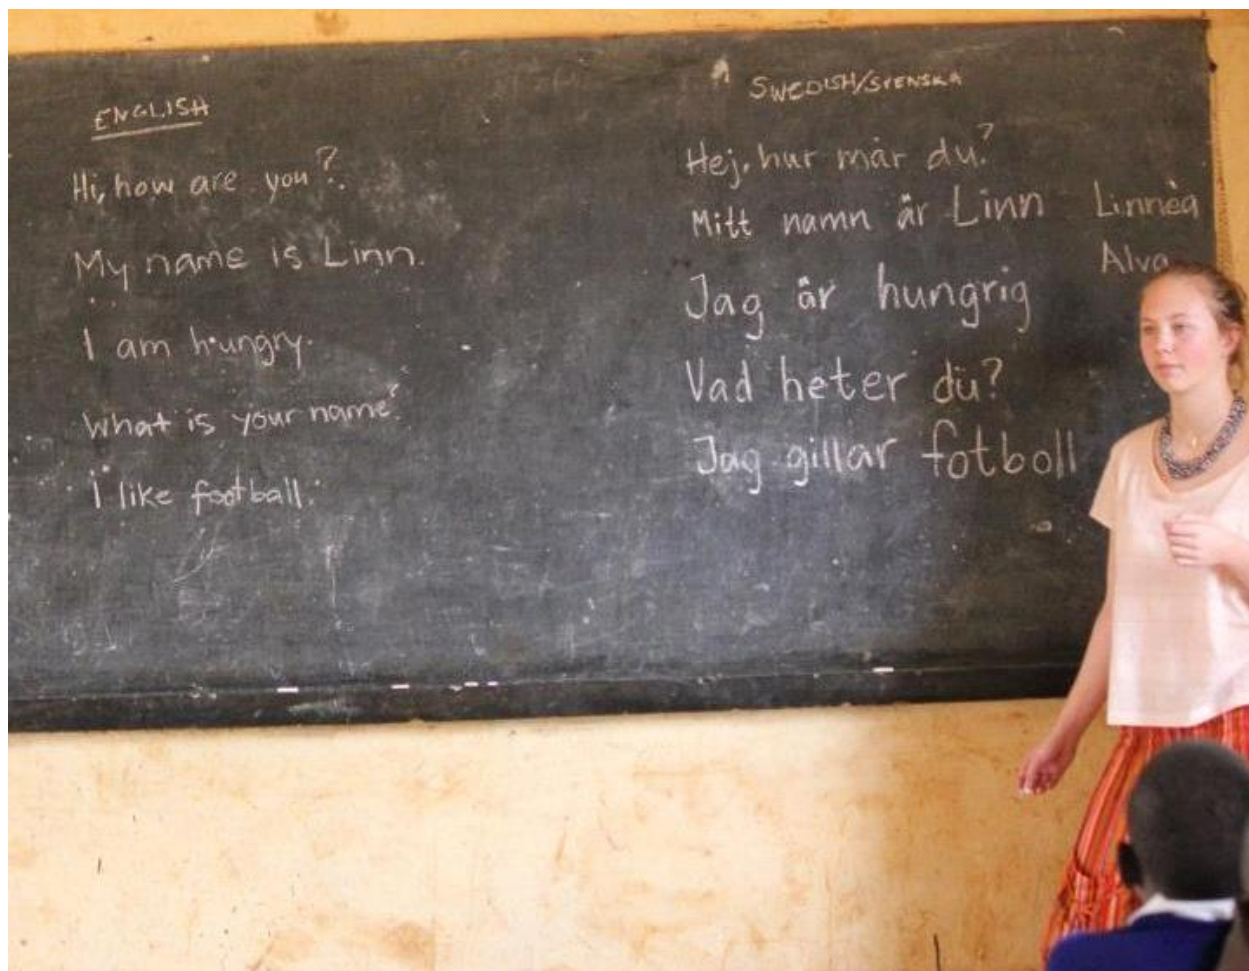 ENGLISH
Hi, how are you?
My name is Linn.
I am hungry.
What is your name?
I like football.
SWEDISH/SVENSKA
Hej, hur mår du?
Mitt namn är Linn Linnèa
Alva
Jag är hungrig
Vad heter du?
Jag gillar fotboll